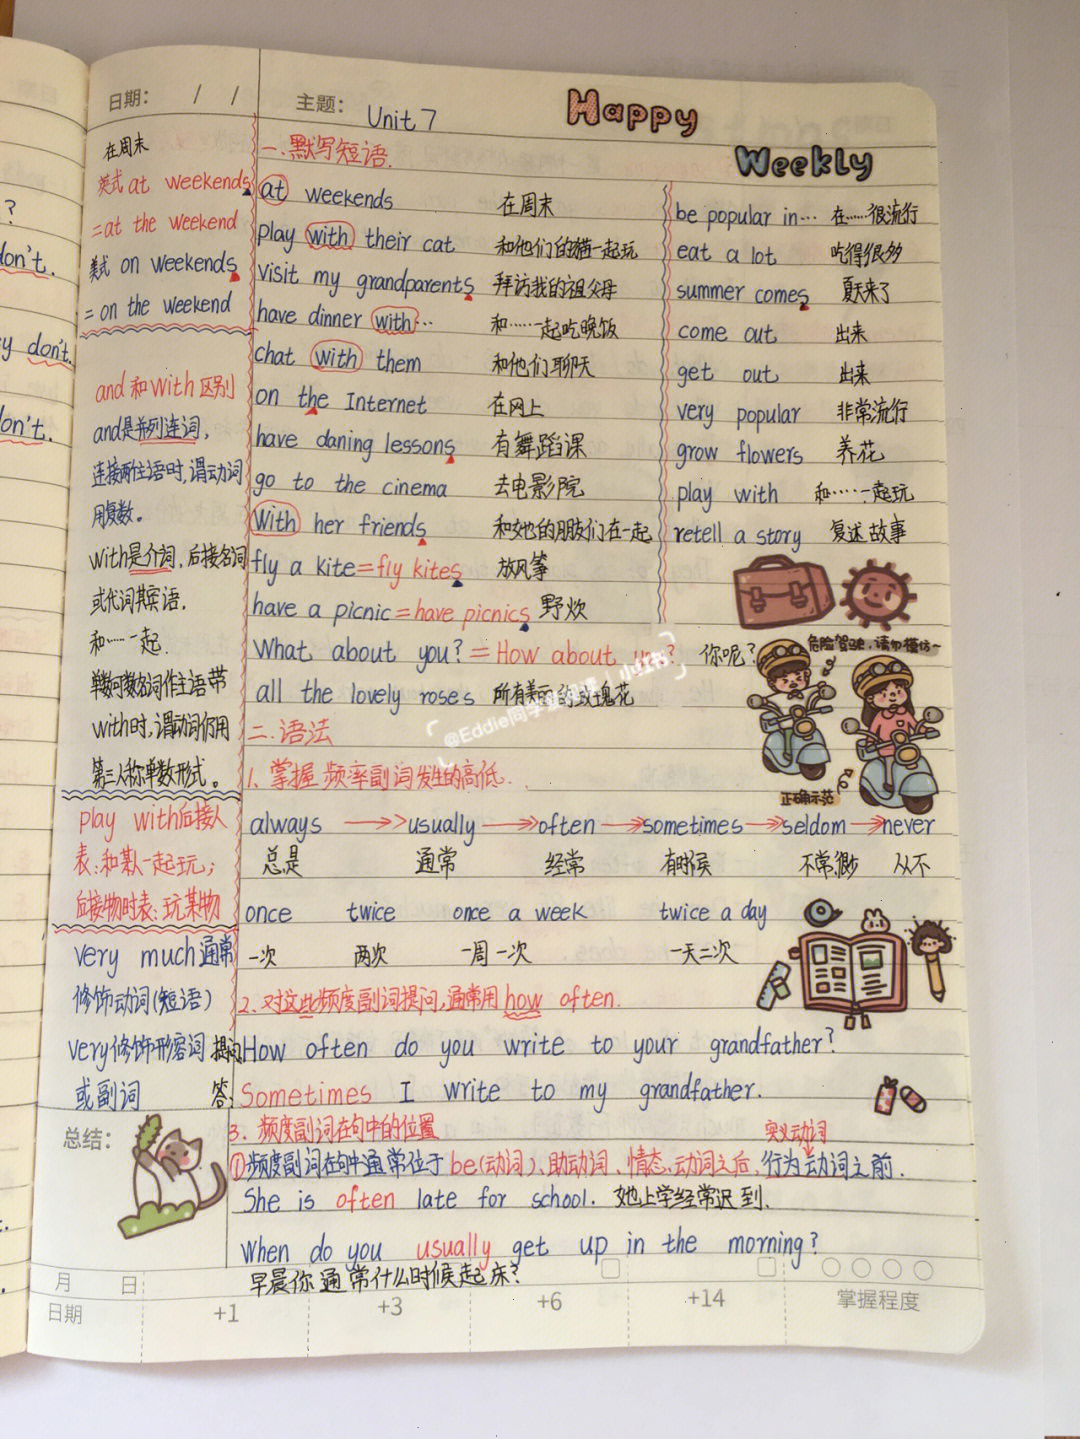 日期： / / 主题： Unit 7
Happy
Weekly
don't.
y don't.
on't.
在周末
美式 at weekends
=at the weekend
美式 on weekends
= on the weekend
and 和 with 区别
and是并列连词，
连接两住语时，谓动词
用复数。
with是介词，后接名词
或代词其宾语，
和……一起.
单数可数名词作主语带
with时，谓动词仍用
第三人称单数形式。
play with后接人
表：和某人一起玩；
后接物时表：玩某物
very much 通常
修饰动词(短语)
very修饰形容词
或副词
一.默写短语.
at weekends 在周末
play with their cat 和他们的猫一起玩
visit my grandparents 拜访我的祖父母
have dinner with… 和……一起吃晚饭
chat with them 和他们聊天
on the Internet 在网上
have daning lessons 有舞蹈课
go to the cinema 去电影院
With her friends 和她的朋友们在一起
fly a kite=fly kites 放风筝
have a picnic=have picnics 野炊
What about you?=How about us? 你呢?
all the lovely roses 所有美丽的玫瑰花
be popular in… 在……很流行
eat a lot 吃得很多
summer comes 夏天来了
come out 出来
get out 出来
very popular 非常流行
grow flowers 养花
play with 和……一起玩
retell a story 复述故事
危险驾驶，请勿模仿~
正确示范
二.语法
1. 掌握 频率副词发生的高低.
always usually often sometimes seldom never
总是 通常 经常 有时候 不常,很少 从不
once twice once a week twice a day
一次 两次 一周一次 一天二次
2.对这些频度副词提问，通常用 how often.
提问 How often do you write to your grandfather?
答： Sometimes I write to my grandfather.
3. 频度副词在句中的位置
实义动词
①频度副词在句中通常位于 be(动词)、助动词、情态动词之后，行为动词之前.
She is often late for school. 她上学经常迟到.
When do you usually get up in the morning?
早晨你通常什么时候起床?
总结：
月 日
日期 +1 +3 +6 +14 掌握程度